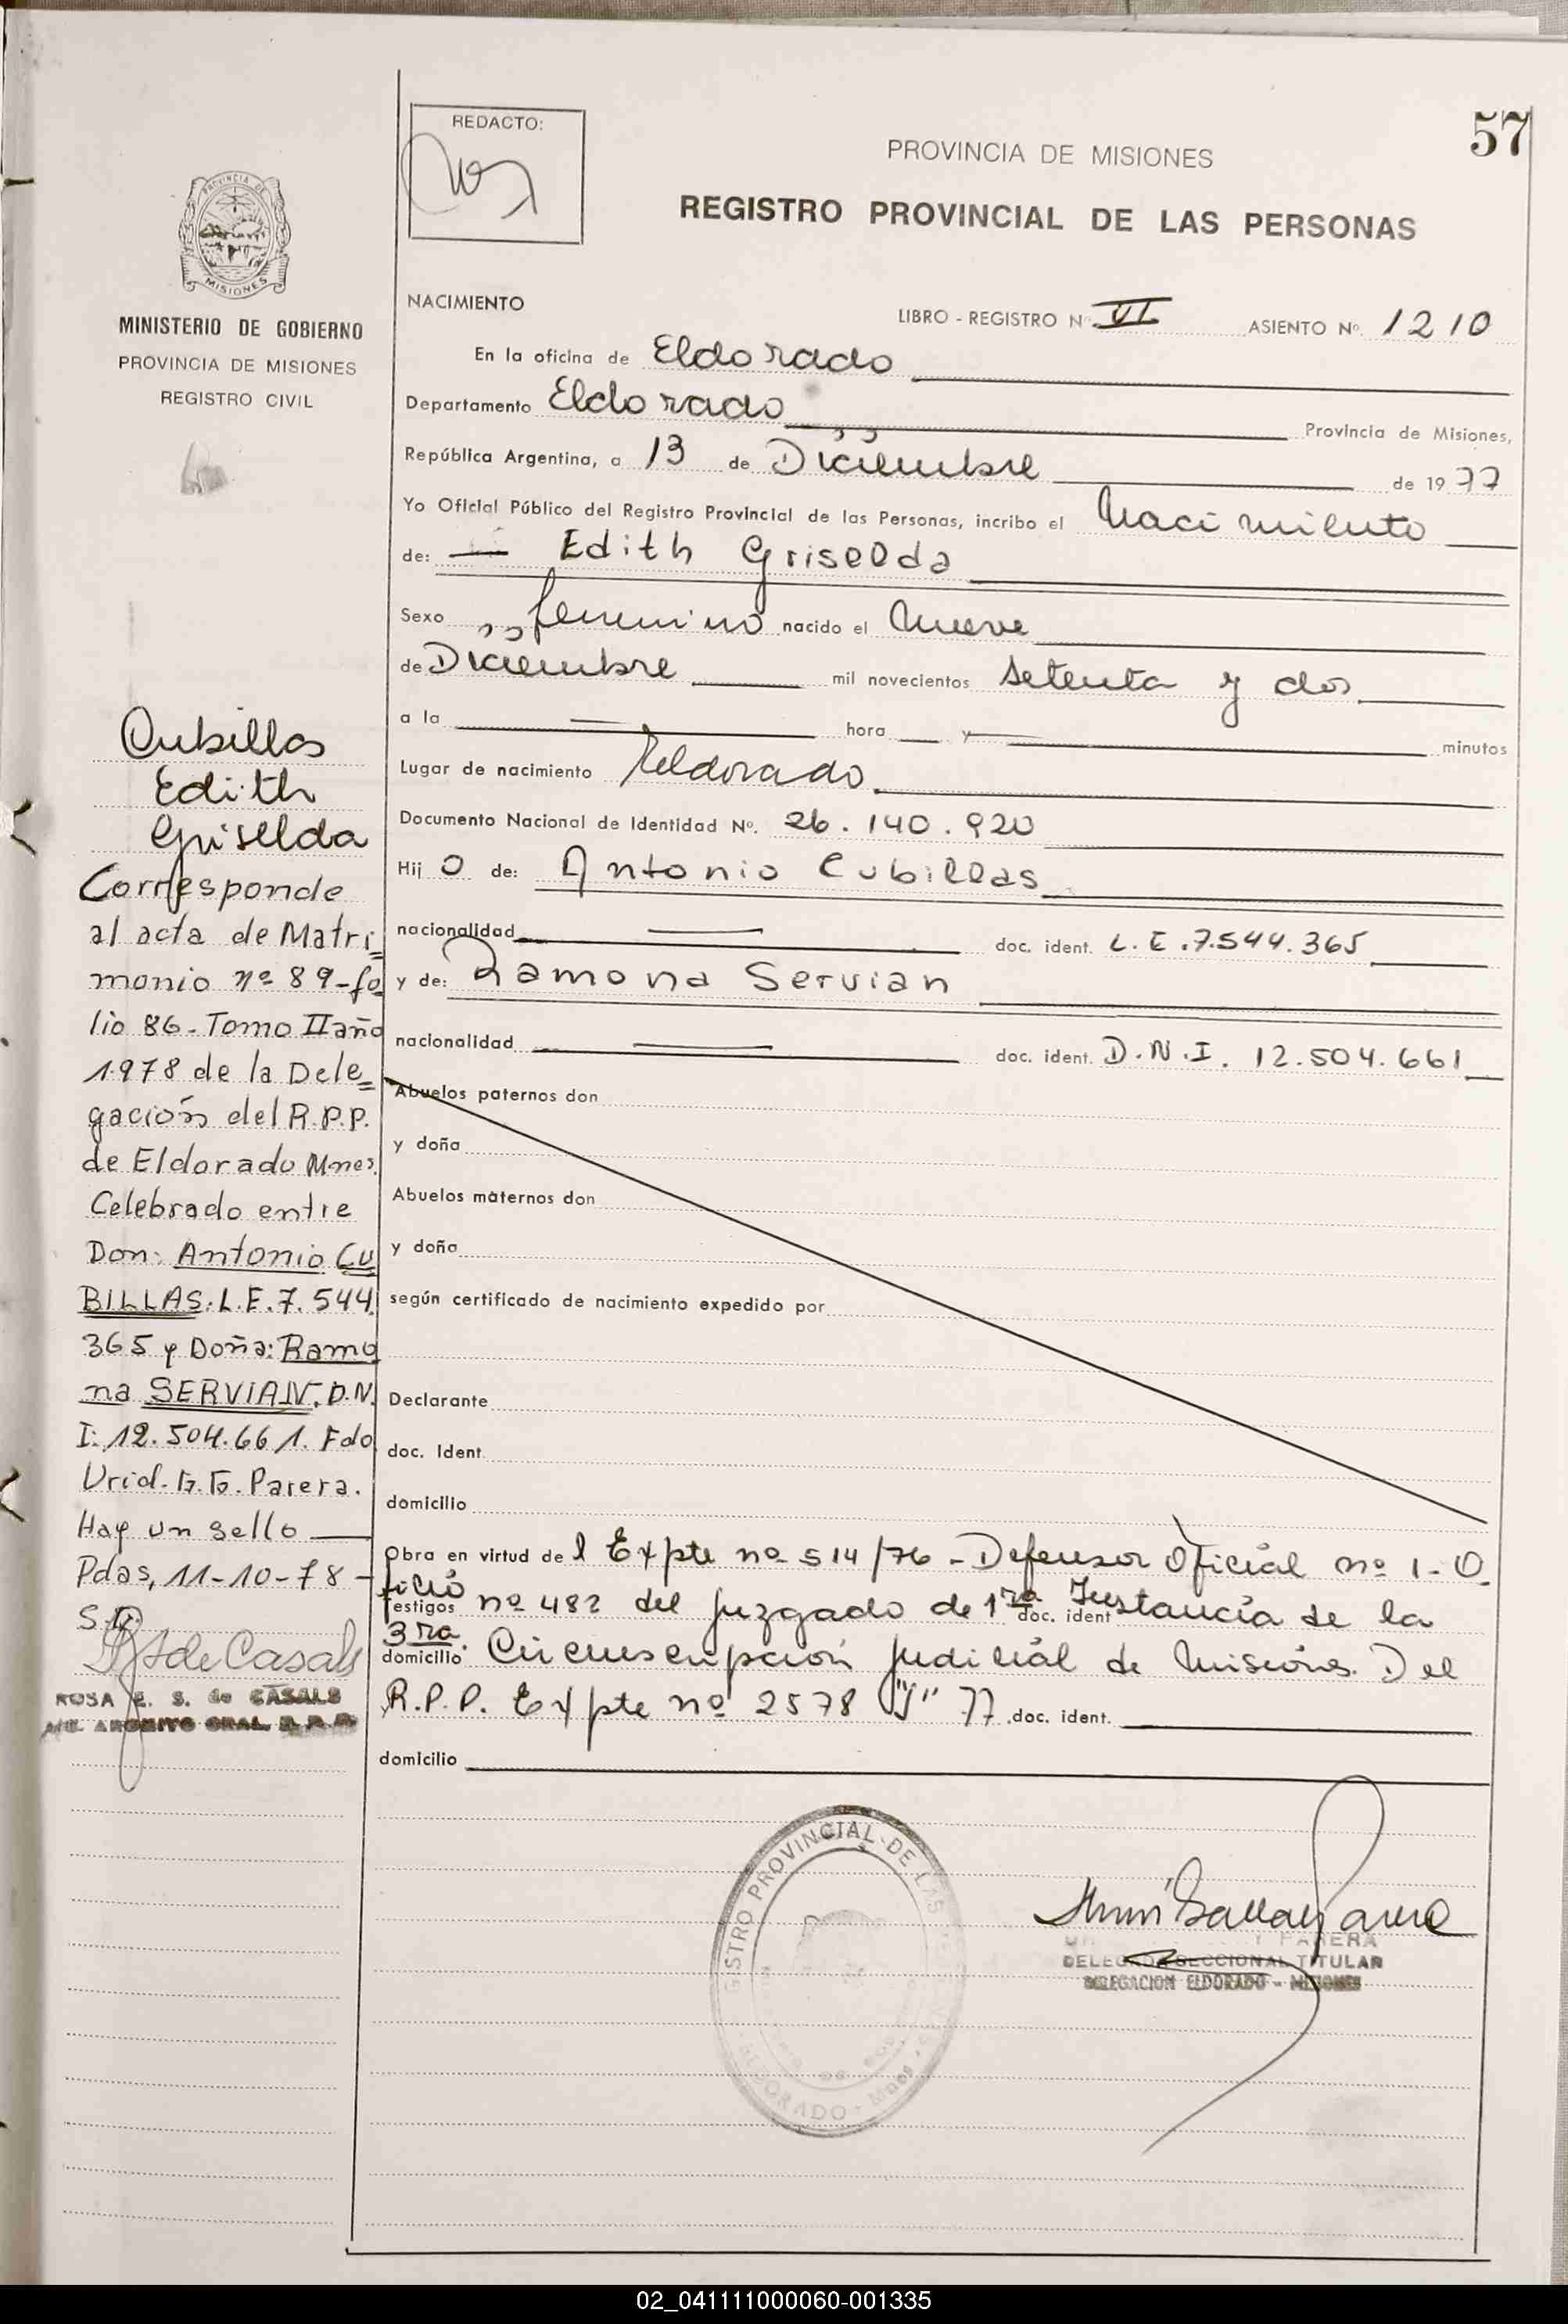 57
REDACTO:
PROVINCIA DE MISIONES
REGISTRO PROVINCIAL DE LAS PERSONAS
PROVINCIA DE
MISIONES
MINISTERIO DE GOBIERNO
PROVINCIA DE MISIONES
REGISTRO CIVIL
NACIMIENTO
LIBRO - REGISTRO Nº VI ASIENTO Nº. 1210
En la oficina de Eldorado
Departamento Eldorado Provincia de Misiones,
República Argentina, a 13 de Diciembre de 1977
Yo Oficial Público del Registro Provincial de las Personas, incribo el Nacimiento
de: — Edith Griselda
Sexo femenino nacido el Nueve
de Diciembre mil novecientos setenta y dos
a la — hora — y — minutos
Lugar de nacimiento Eldorado
Documento Nacional de Identidad Nº. 26.140.920
Hij o de: Antonio Cubillas
nacionalidad — doc. ident. L.E.7.544.365
y de: Ramona Servian
nacionalidad — doc. ident. D.N.I. 12.504.661
Abuelos paternos don
y doña
Abuelos maternos don
y doña
según certificado de nacimiento expedido por
Declarante
doc. Ident.
domicilio
Obra en virtud del Expte nº 514/76 - Defensor Oficial nº 1 - O
ficio
testigos nº 482 del Juzgado de 1ra Instancia de la
doc. ident
3ra.
domicilio Circunscripción Judicial de Misiones. Del
R.P.P. Expte nº 2578 "J" 77 doc. ident.
domicilio
Cubillas
Edith
Griselda
Corresponde
al acta de Matri=
monio nº 89-fo
lio 86-Tomo II año
1978 de la Dele=
gación del R.P.P.
de Eldorado Mnes.
Celebrado entre
Don: Antonio CU
BILLAS: L.E.7.544.
365 y Doña: Ramo
na SERVIAN. D.N.
I: 12.504.661. Fdo
Urid. G. G. Parera.
Hay un sello
Pdas, 11-10-78-
S. de Casals
ROSA E. S. de CASALS
GISTRO PROVINCIAL DE LAS
ELDORADO - Mnes
Y PARERA
DELEGADA SECCIONAL TITULAR
DELEGACION ELDORADO - MISIONES
02_041111000060-001335